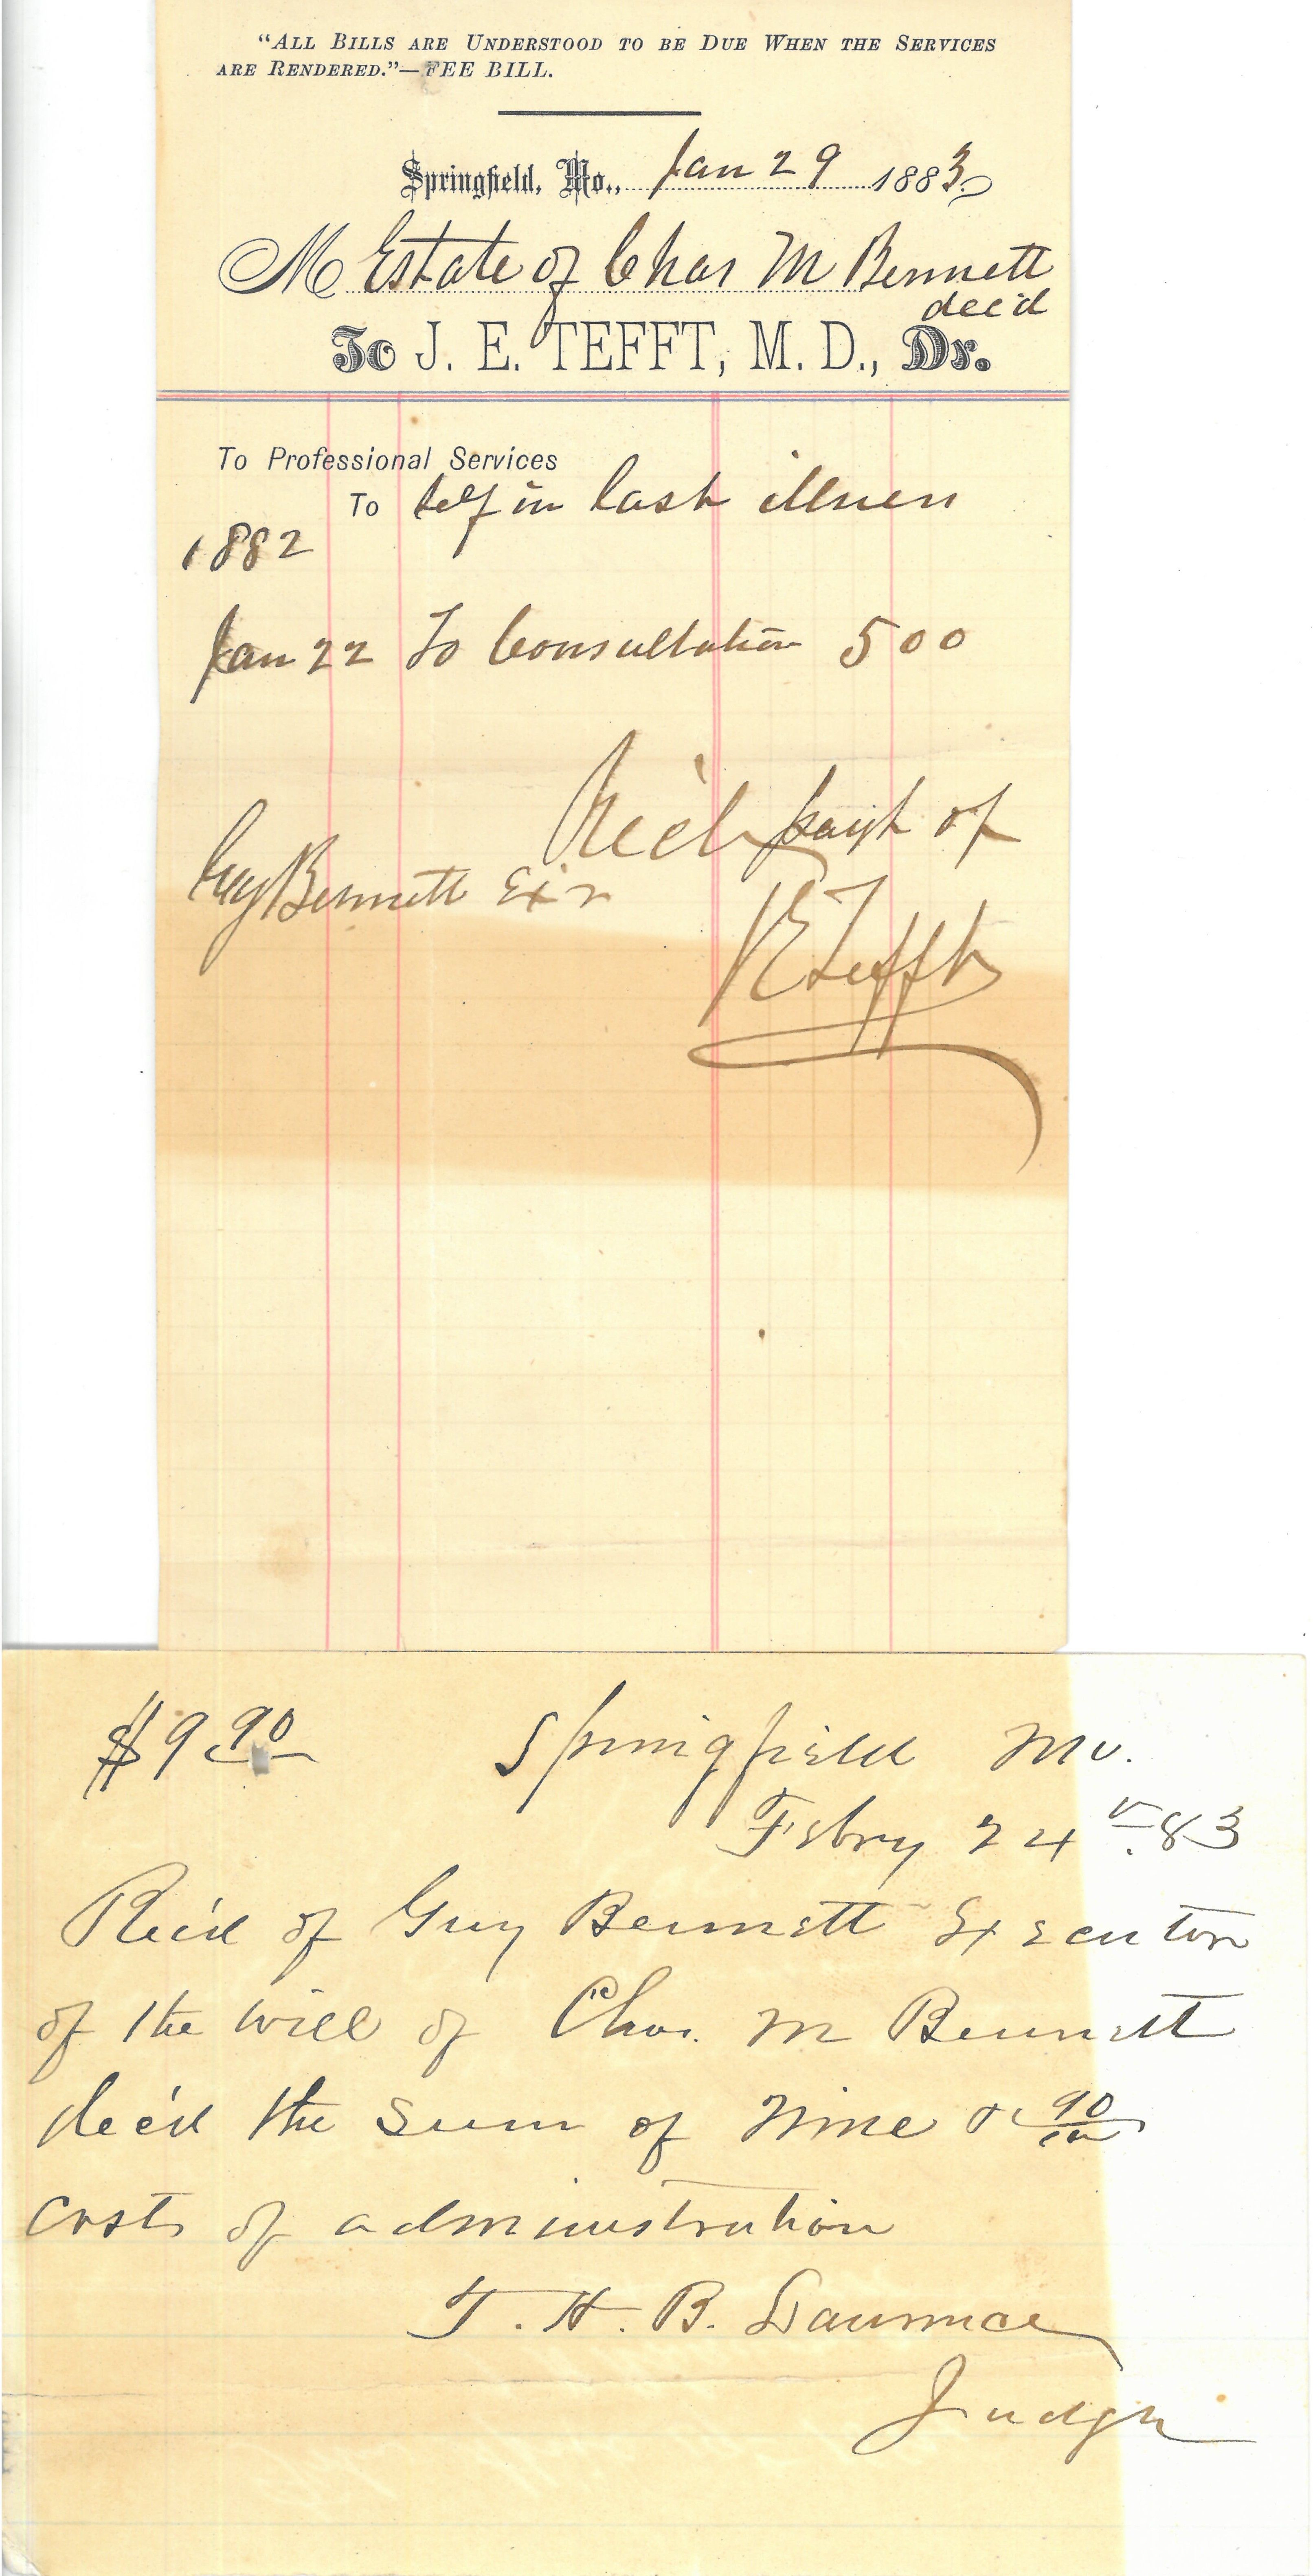 "ALL BILLS ARE UNDERSTOOD TO BE DUE WHEN THE SERVICES
ARE RENDERED."—FEE BILL.
Springfield, Mo., Jan 29 1883
M Estate of Chas M Bennett
dec'd
To J. E. TEFFT, M. D., Dr.
To Professional Services
To Self in last illness
1882
Jan 22 To Consultation 500
Rec'd payt of
Guy Bennett Exr
JE Tefft
$9 90
Springfield Mo.
Febry 24 83
Rec'd of Guy Bennett Executor
of the will of Chas. M Bennett
dec'd the sum of Nine & 90/100
costs of administration
T. H. B. Lawrence
Judge